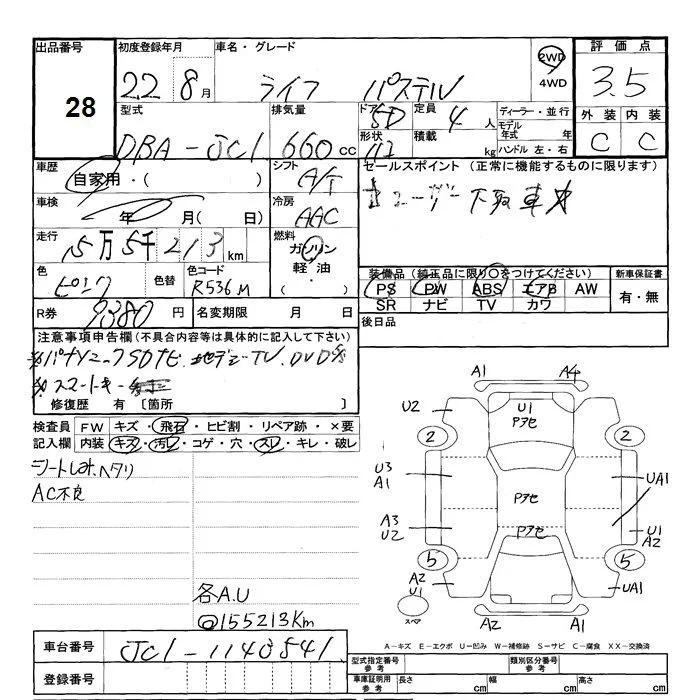 出品番号 初度登録年月 車名・グレード 2WD 4WD 評価点
28 22 8月 ライフ パステル 3.5
型式 排気量 ドア 5D 定員 4人 ディーラー・並行 外装 内装
DBA-JC1 660cc 形状 積載 kg モデル年式 年 ハンドル 左・右 C C
車歴 自家用・( ) シフト A/T セールスポイント (正常に機能するものに限ります)
車検 年 月( 日) 冷房 AAC ユーザー下取車
走行 15万5千213km 燃料 ガソリン 軽油 ( ・ )
色 ピンク 色替 色コード R536M 装備品 (純正品に限り○をつけてください) 新車保証書
PS PW ABS エアB AW 有・無
SR ナビ TV カワ
R券 9380円 名変期限 月 日 後日品
注意事項申告欄(不具合内容等は具体的に記入して下さい)
パナソニックSDナビ 地デジTV DVD
スマートキー
修復歴 有 [箇所 ]
検査員 FW キズ・飛石・ヒビ割・リペア跡・×要
記入欄 内装 キズ・汚レ・コゲ・穴・スレ・キレ・破レ
シートしみ、ヘタリ
AC不良
各A.U
@155213Km
A1 A4
U2 U1 アセ
2 2
U3 A1 アセ UA1
A3 U2 アセ U1 A2
5 5
A2 U1 UA1
スペア A2 A1
A-キズ E-エクボ U-凹み W-補修跡 S-サビ C-腐食 XX-交換済
車台番号 JC1-1140841 型式指定番号 参考 類別区分番号 参考
登録番号 車庫証明用 参考 長さ cm 幅 cm 高さ cm